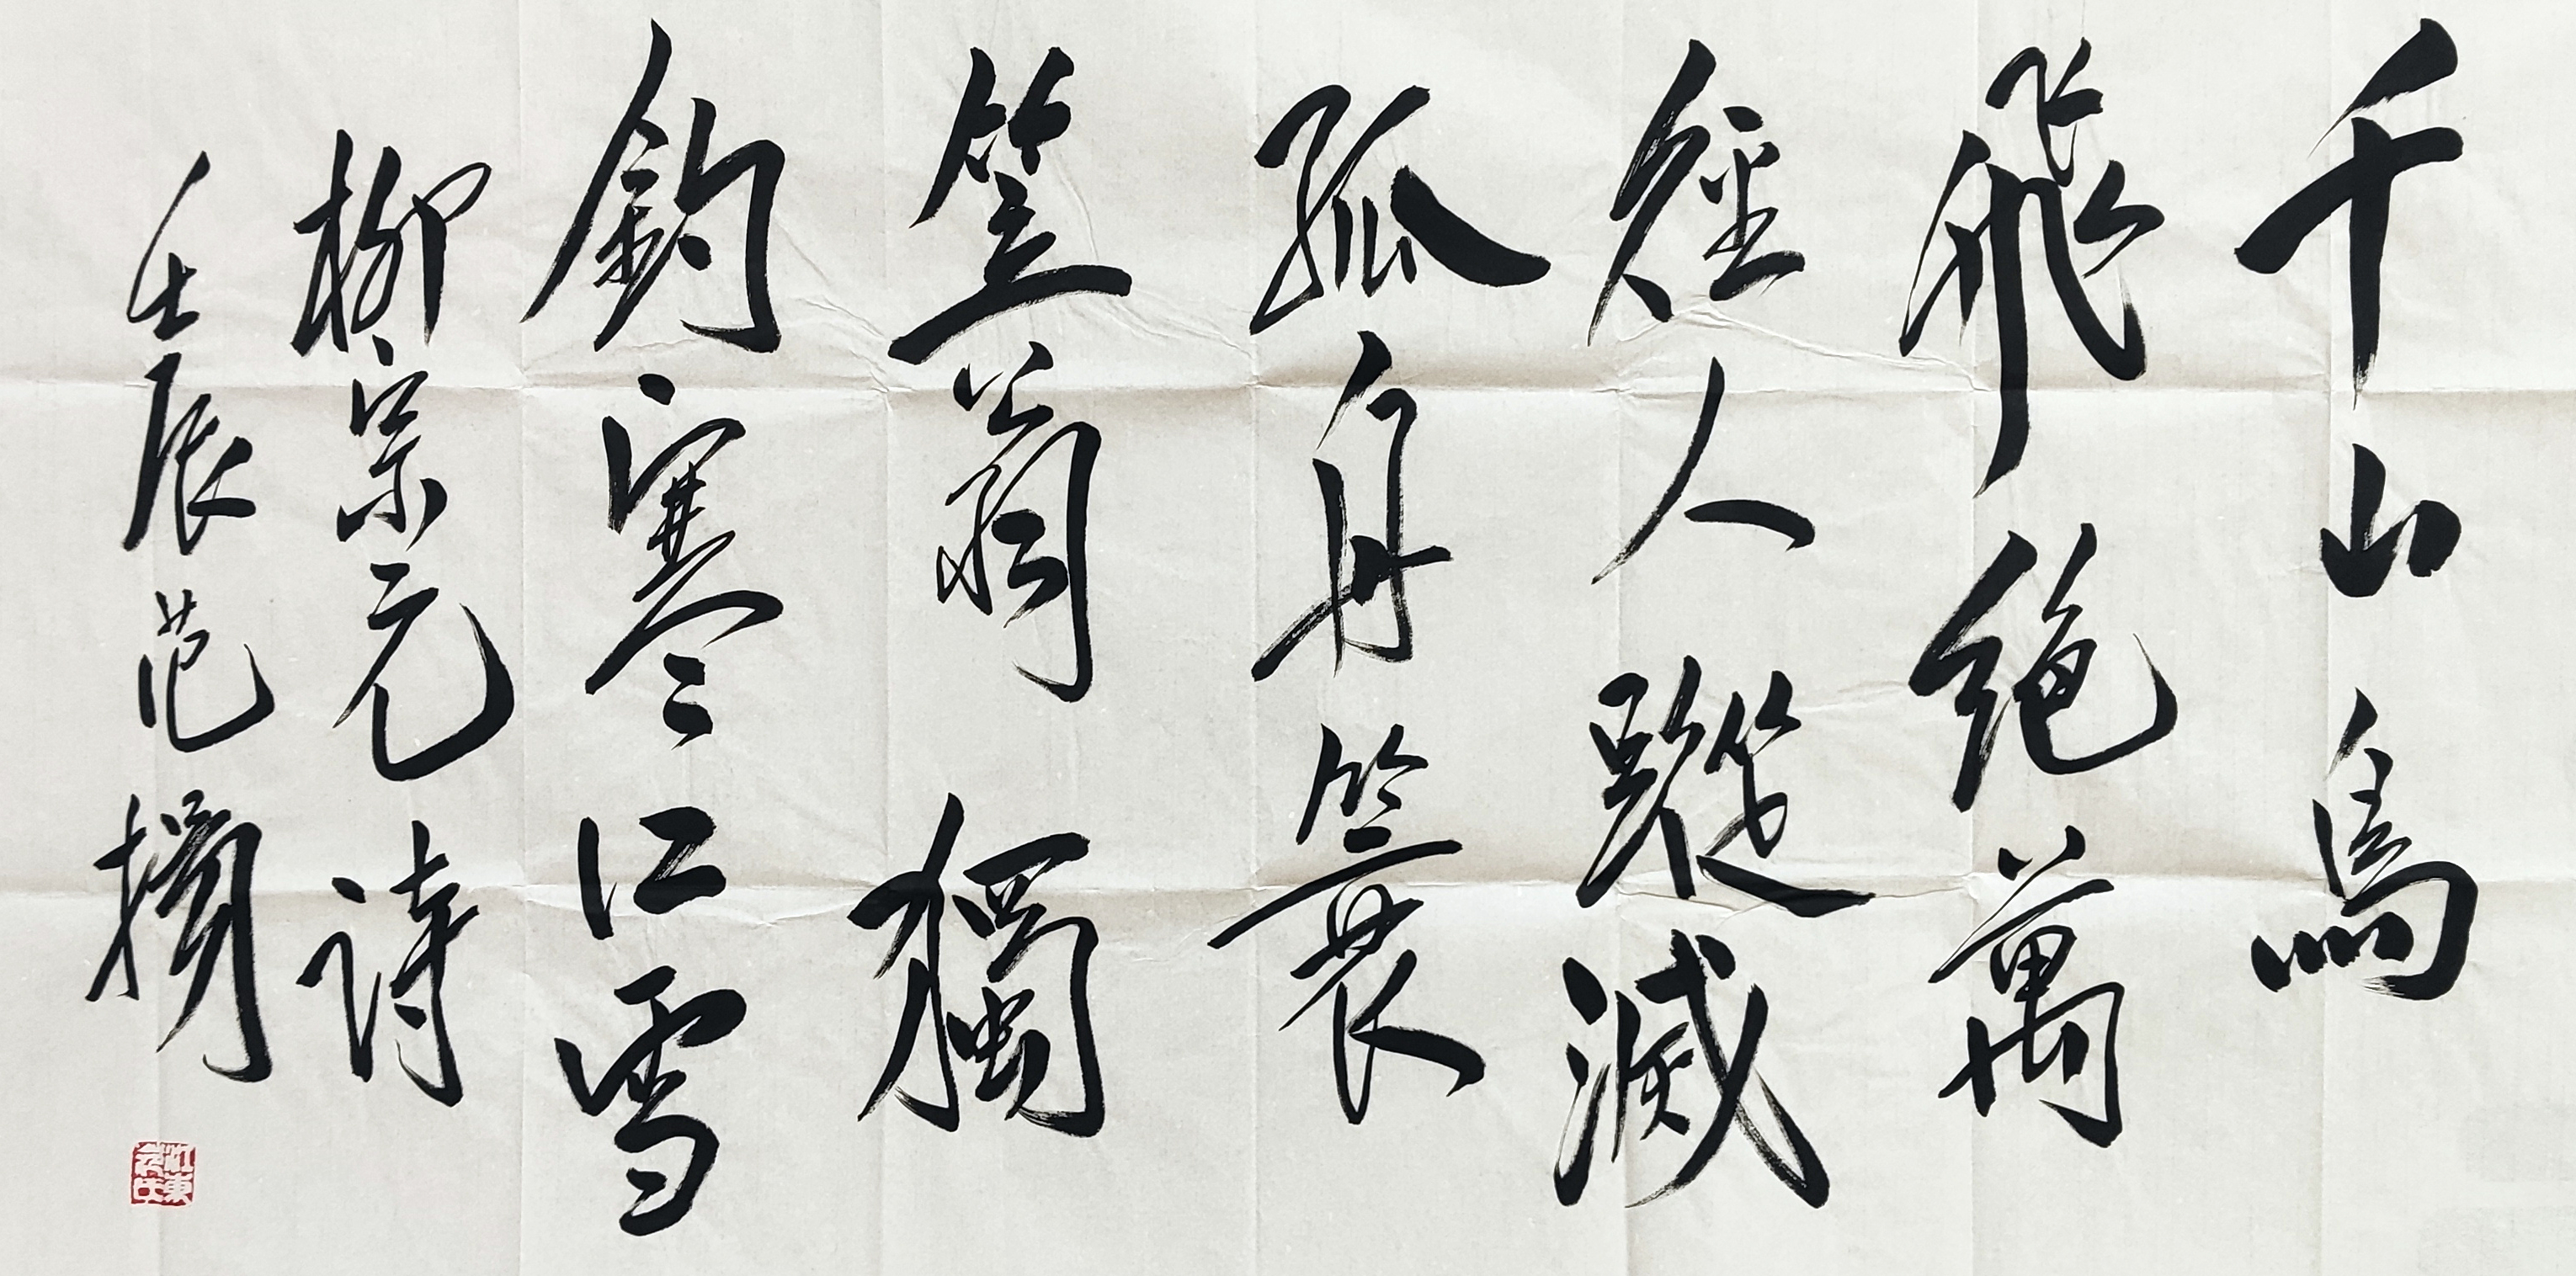 千山鳥
飛絕萬
徑人蹤滅
孤舟簑
笠翁獨
釣寒江雪
柳宗元詩
壬辰范擕